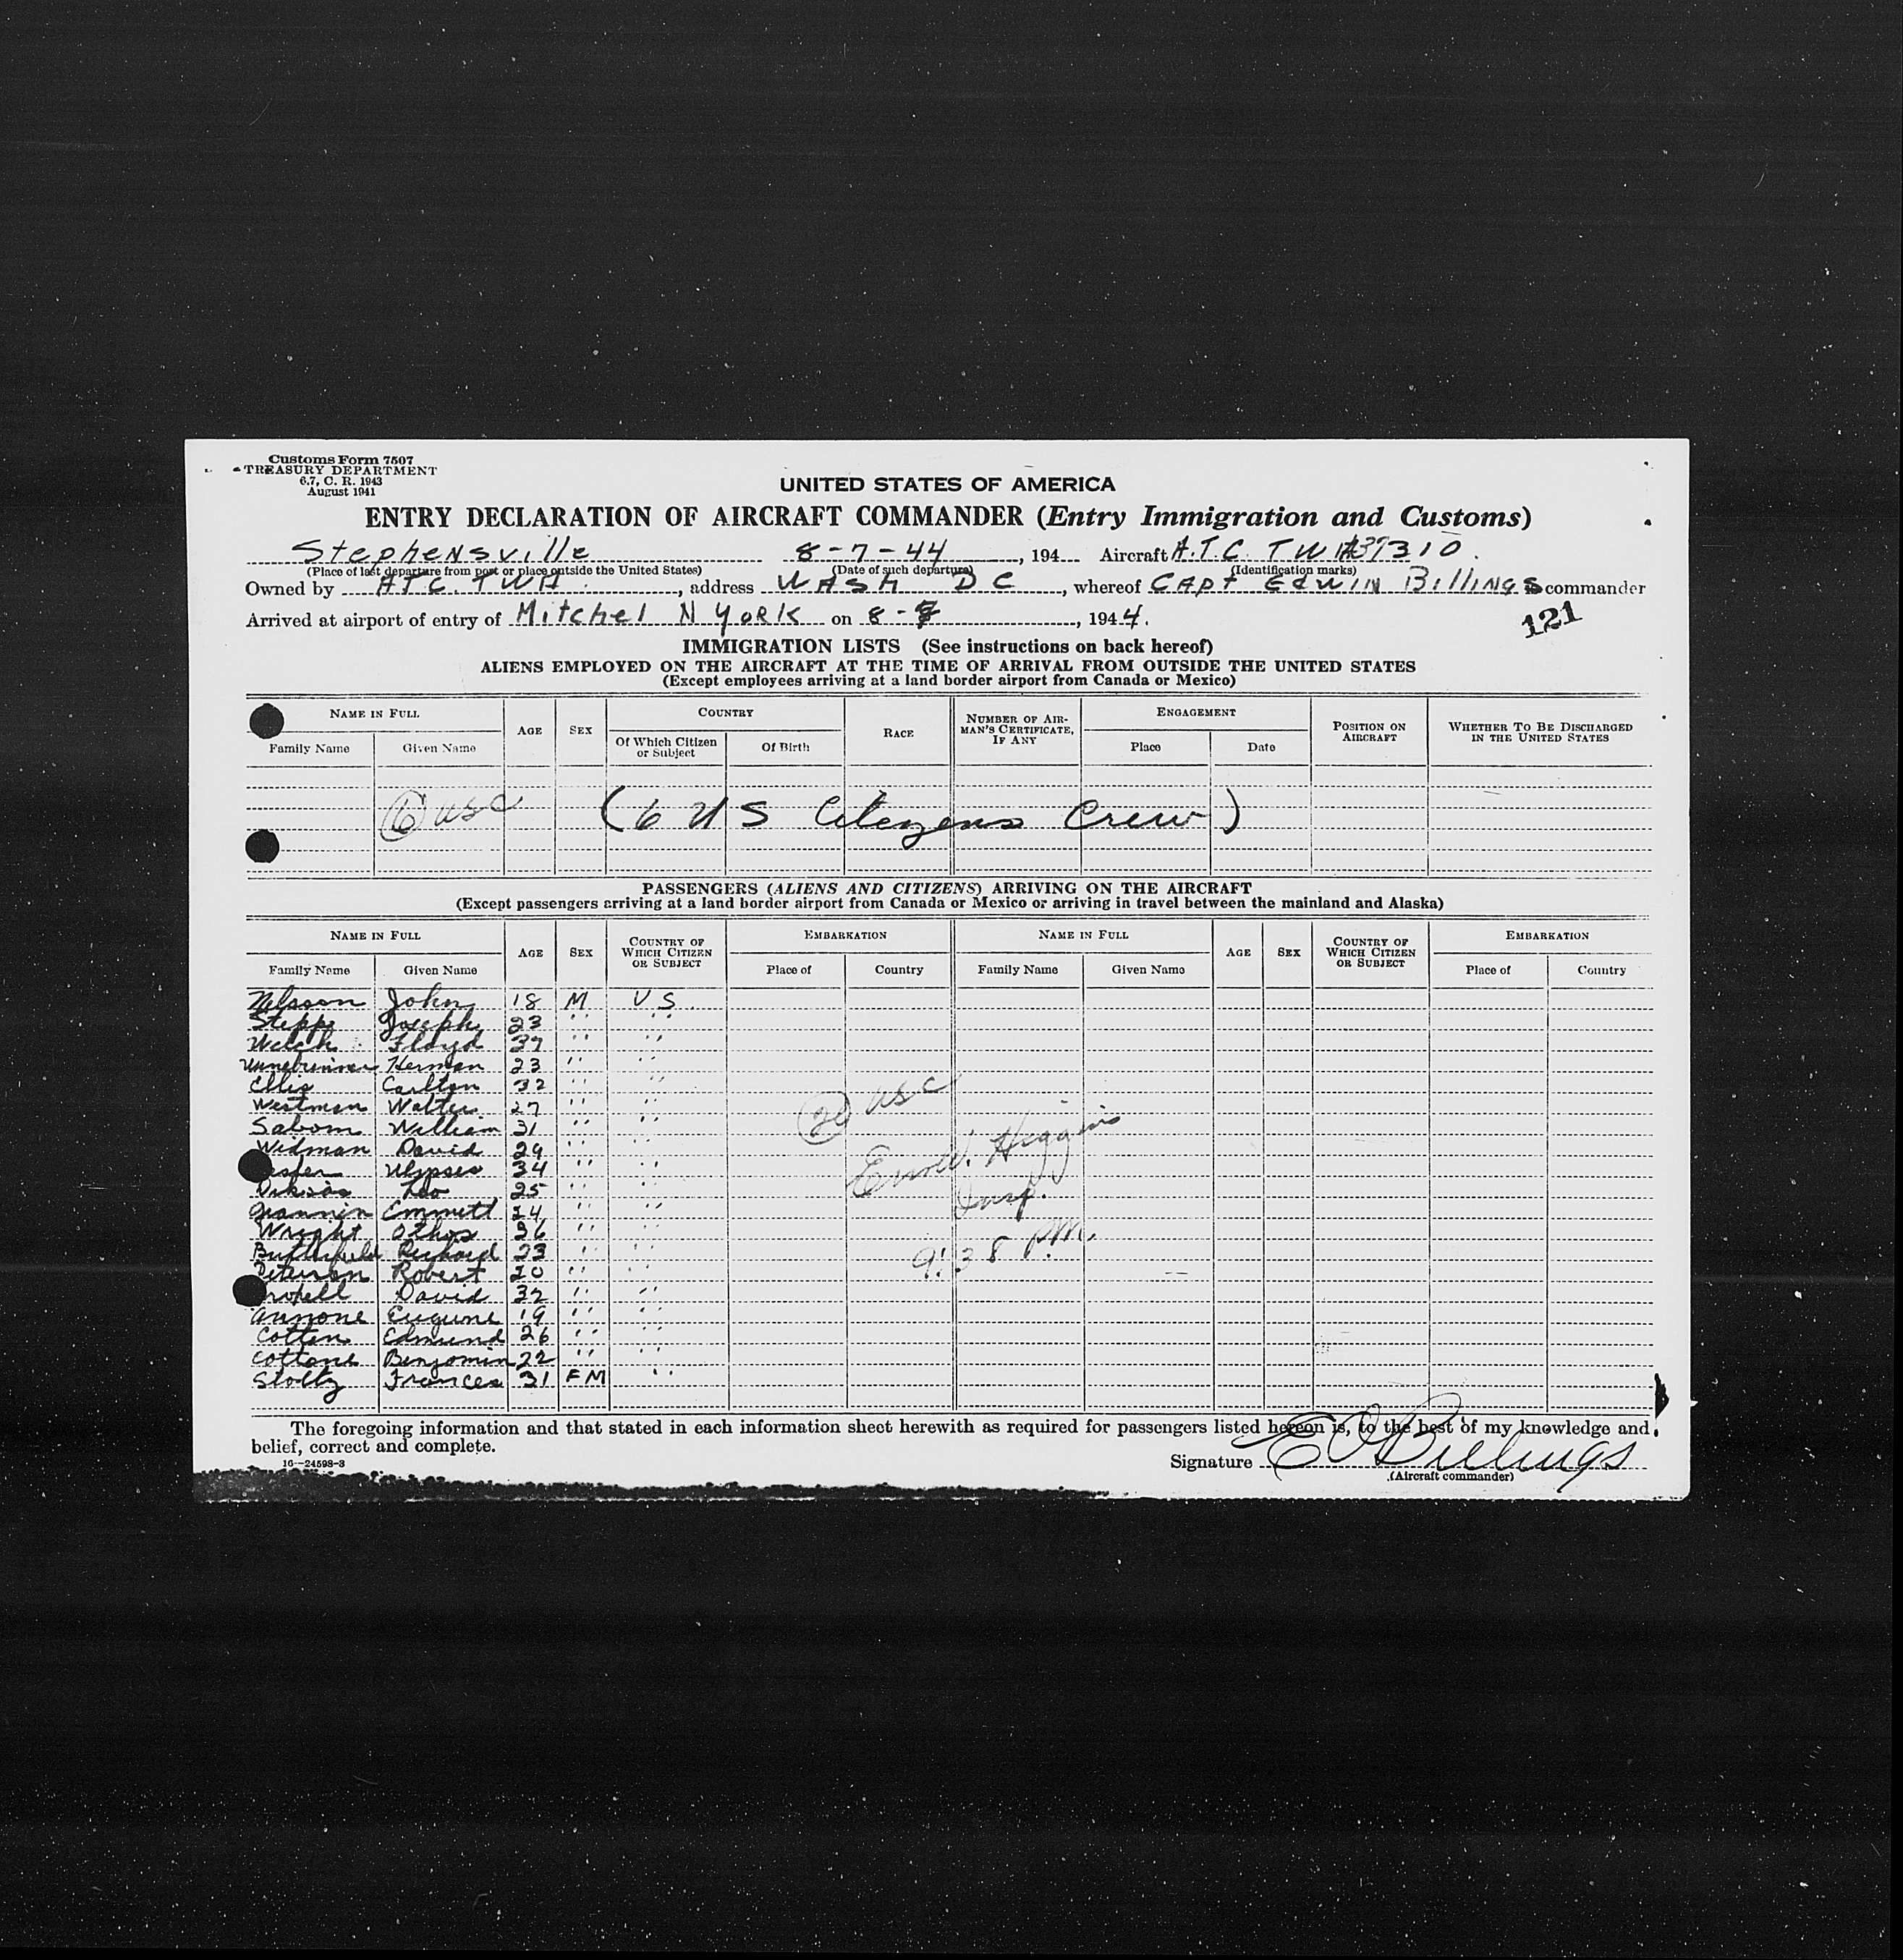 Customs Form 7507
TREASURY DEPARTMENT
6.7, C. R. 1943
August 1941
UNITED STATES OF AMERICA
ENTRY DECLARATION OF AIRCRAFT COMMANDER (Entry Immigration and Customs)
Stephensville 8-7-44, 194 Aircraft A.T.C. TWA 37310.
(Place of last departure from port or place outside the United States) (Date of such departure) (Identification marks)
Owned by ATC. TWA., address WASH DC, whereof CAPT EDWIN BILLINGS is commander
Arrived at airport of entry of Mitchel N YORK on 8-, 1944.
121
IMMIGRATION LISTS (See instructions on back hereof)
ALIENS EMPLOYED ON THE AIRCRAFT AT THE TIME OF ARRIVAL FROM OUTSIDE THE UNITED STATES
(Except employees arriving at a land border airport from Canada or Mexico)
NAME IN FULL AGE SEX COUNTRY RACE NUMBER OF AIRMAN'S CERTIFICATE, IF ANY ENGAGEMENT POSITION ON AIRCRAFT WHETHER TO BE DISCHARGED IN THE UNITED STATES
Family Name Given Name Of Which Citizen or Subject Of Birth Place Date
6 USC (6 US Citezens Crew)
PASSENGERS (ALIENS AND CITIZENS) ARRIVING ON THE AIRCRAFT
(Except passengers arriving at a land border airport from Canada or Mexico or arriving in travel between the mainland and Alaska)
NAME IN FULL AGE SEX COUNTRY OF WHICH CITIZEN OR SUBJECT EMBARKATION NAME IN FULL AGE SEX COUNTRY OF WHICH CITIZEN OR SUBJECT EMBARKATION
Family Name Given Name Place of Country Family Name Given Name Place of Country
Nilsson John 18 M U S.
Stepp Joseph 23 " "
Welch Floyd 37 " "
Herman 23 " "
Ellis Carlton 32 " "
Westman Walter 27 " "
Sabom William 31 " "
Widman David 29 " "
Ulysses 34 " "
Leo 25 " "
Giannin Emmett 24 " "
Wright Othos 26 " "
Butterfield Richard 23 " "
Peterson Robert 20 " "
David 32 " "
Annone Eugune 19 " "
Cotten Edmund 26 " "
Cottone Benjamin 22 " "
Stoltz Frances 31 F M "
USC
Higgins
Insp.
9:38 PM.
The foregoing information and that stated in each information sheet herewith as required for passengers listed hereon is, to the best of my knowledge and
belief, correct and complete.
16—24598-3
Signature E O Billings
(Aircraft commander)